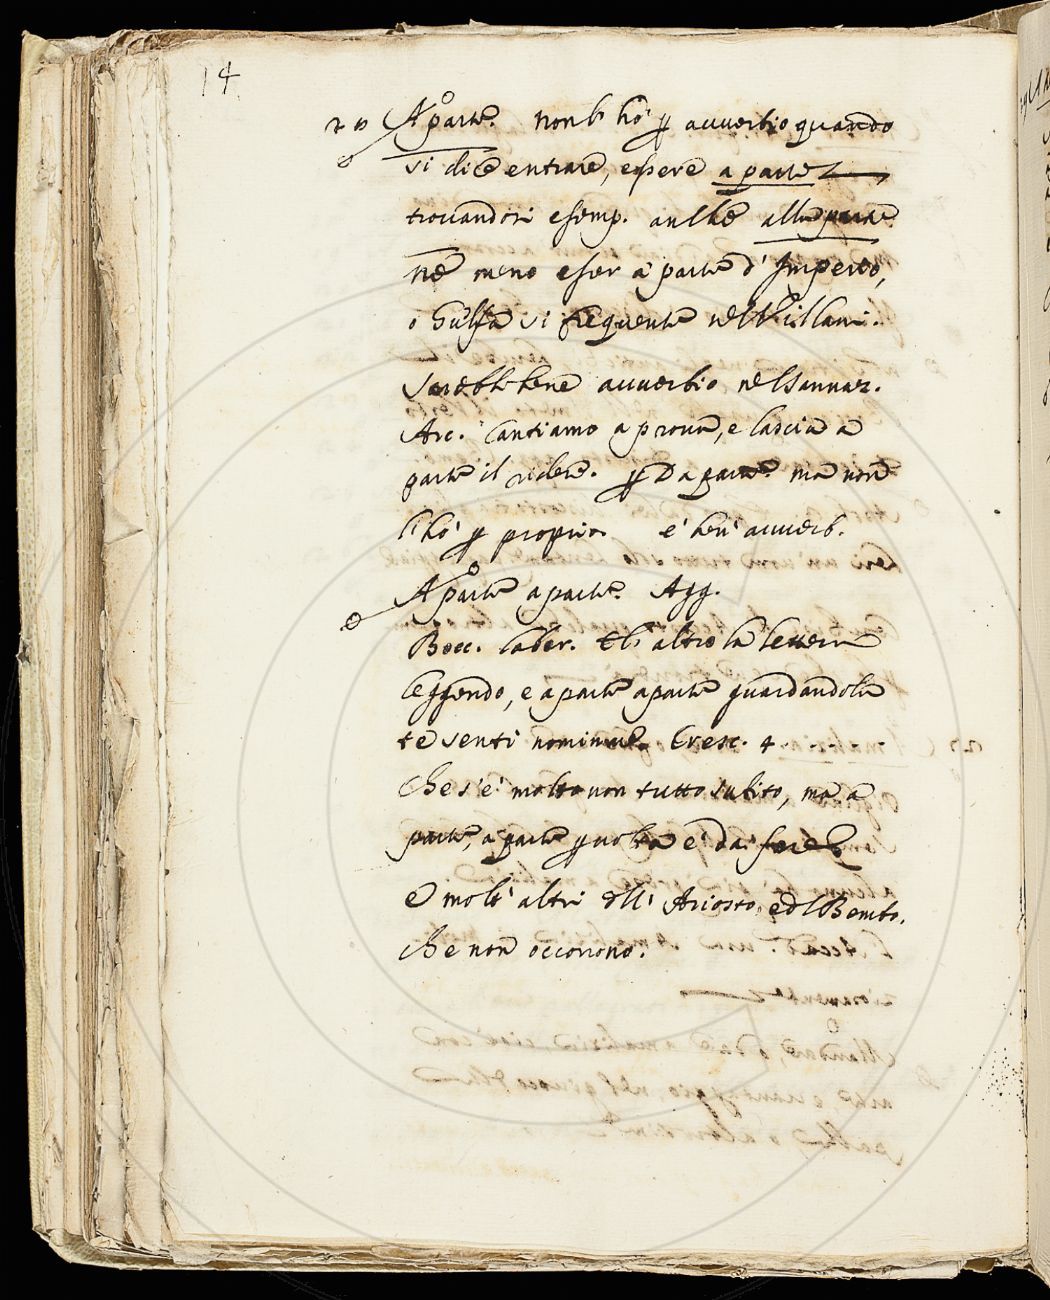 14
A parte. non l'hò p avverbio quando
si dice entrare, essere a parte
trovandosi esemp. anche alla parte
ne meno esser à parte d'Imperio,
o Guelfa si frequente nel Villani.
Sarebbe bene avverbio nel Sannaz.
Arc. Cantiamo a prova, e lascia a
parte il ridere. p Da parte. ma non
l'hò p proprio. è ben avverb.
A parte a parte. Agg.
Bocc. Laber. E l'altro la lettera
leggendo, e a parte a parte guardandola
te senti nominare. Cresc. 4 . . . .
Che s'è molto non tutto subito, ma a
parte, a parte p volta è da farsi
e molt'altri dell'Ariosto, e del Bembo.
che non occorrono.